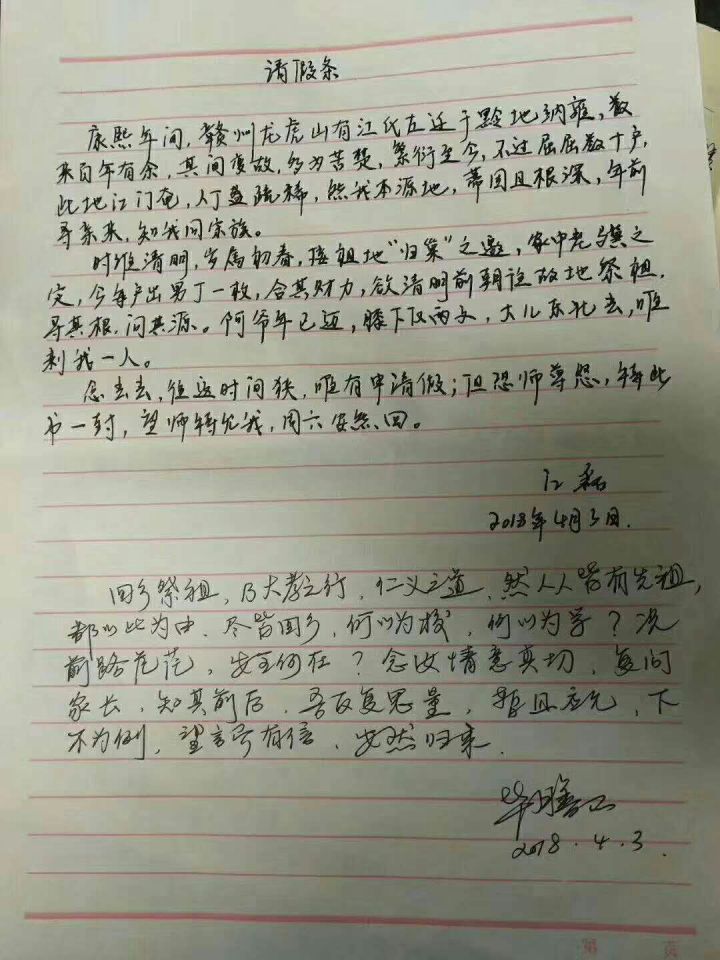 请假条
康熙年间，赣州龙虎山有江氏左迁于黔地纳雍，数
来百年有余，其间变故，多为苦楚，繁衍至今，不过屈屈数十户，
此地江门奄，人丁益疏稀，然我本源地，蒂固且根深，年前
寻亲来，知我同宗族。
时维清明，岁属初春，接祖地“归巢”之邀，家中老与冀之
定，今每户出男丁一枚，合其财力，欲清明前朝诣故地祭祖，
寻其根，问其源。阿爷年已迈，膝下仅两子，大儿东北去，唯
剩我一人。
念去去，往返时间狭，唯有申请假；但恐师尊怒，特此
书一封，望师特允我，周六安然回。
江磊
2018年4月3日.
回乡祭祖，乃大孝之行，仁义之道，然人人皆有先祖，
都以此为由，尽皆回乡，何以为校，何以为学？况
前路茫茫，安全何在？念汝情意真切，复问
家长，知其前后，吾反复思量，暂且应允，下
不为例，望言而有信，安然归来.
2018.4.3.
第 页